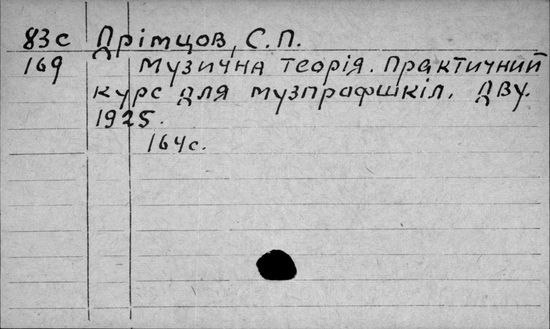 83с Дрімцов, С.П.
169 Музична теорія. Практичний
курс для музпрафшкіл. ДВУ.
1925.
164с.